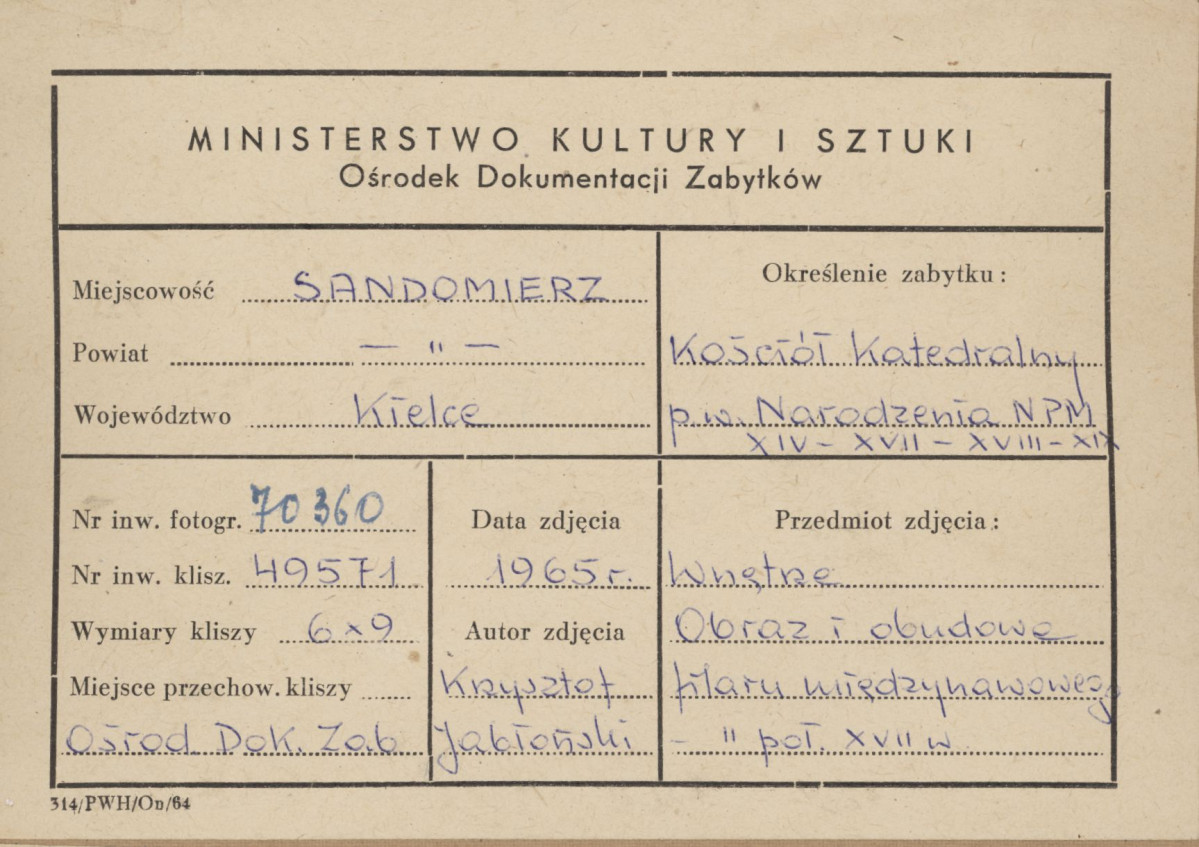 MINISTERSTWO KULTURY I SZTUKI
Ośrodek Dokumentacji Zabytków
Miejscowość SANDOMIERZ
Powiat — " —
Województwo Kielce
Określenie zabytku:
Kościół Katedralny
p.w. Narodzenia NPM
XIV – XVII – XVIII – XIX
Nr inw. fotogr. 70360
Nr inw. klisz. 49571
Wymiary kliszy 6x9
Miejsce przechow. kliszy
Ośrod. Dok. Zab
Data zdjęcia
1965 r.
Autor zdjęcia
Krzysztof
Jabłoński
Przedmiot zdjęcia:
Wnętrze
Obraz i obudowa
filaru międzynawowego
– " poł. XVII w
314/PWH/On/64